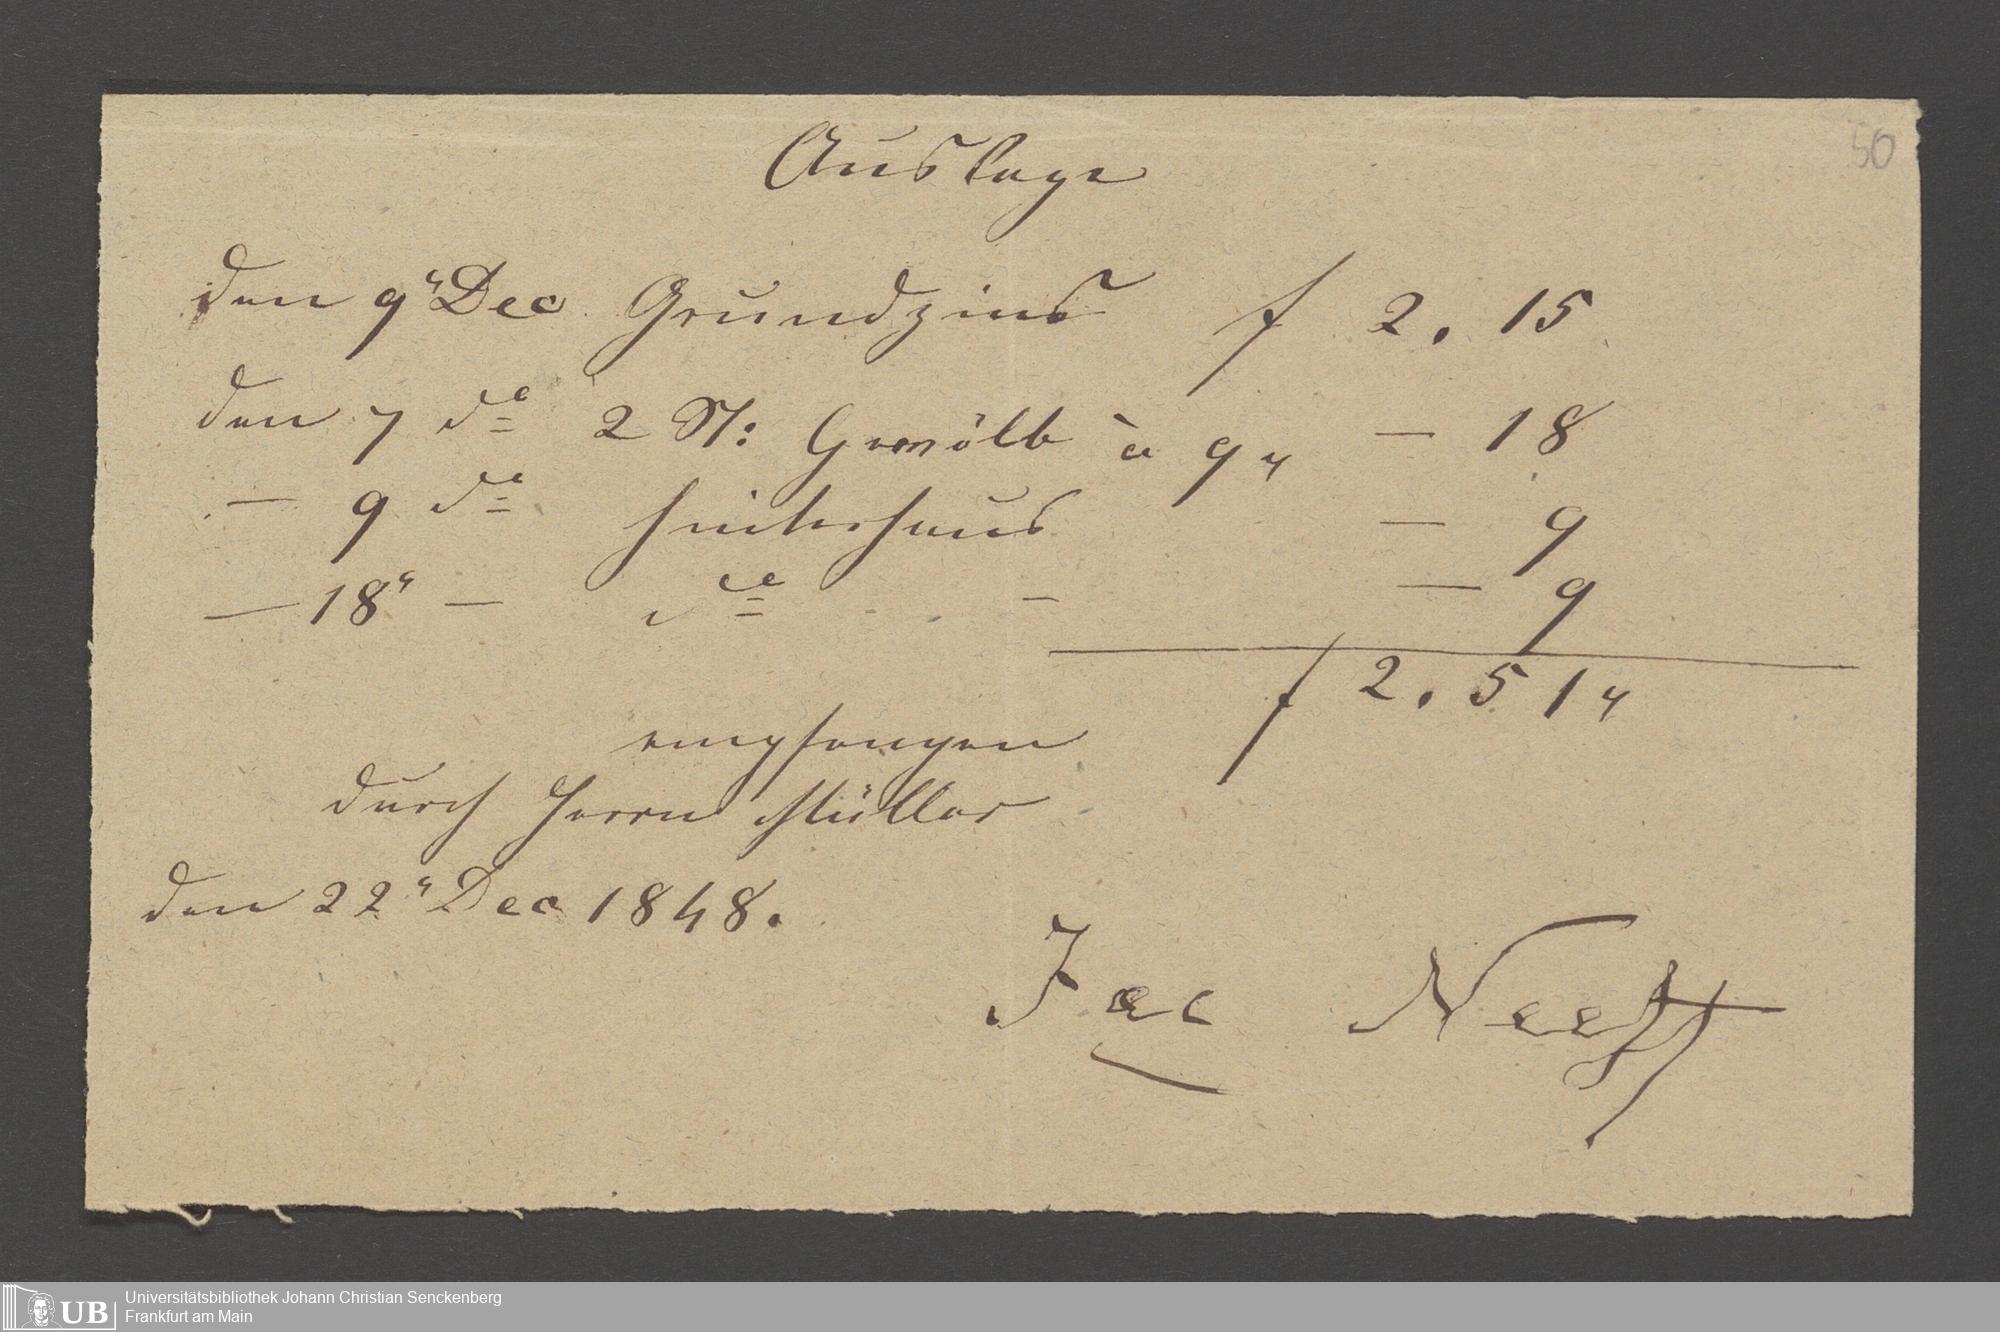 50
Auslage
den 9" Dec Grundzins f 2. 15
den 7 do 2 St: Gewölb à 9" — 18
— 9 do hinterhaus — 9
— 18" — do — — 9
f 2. 51"
empfangen
durch Herrn Müller
den 22" Dec 1848.
Jac Neeff
UB Universitätsbibliothek Johann Christian Senckenberg
Frankfurt am Main